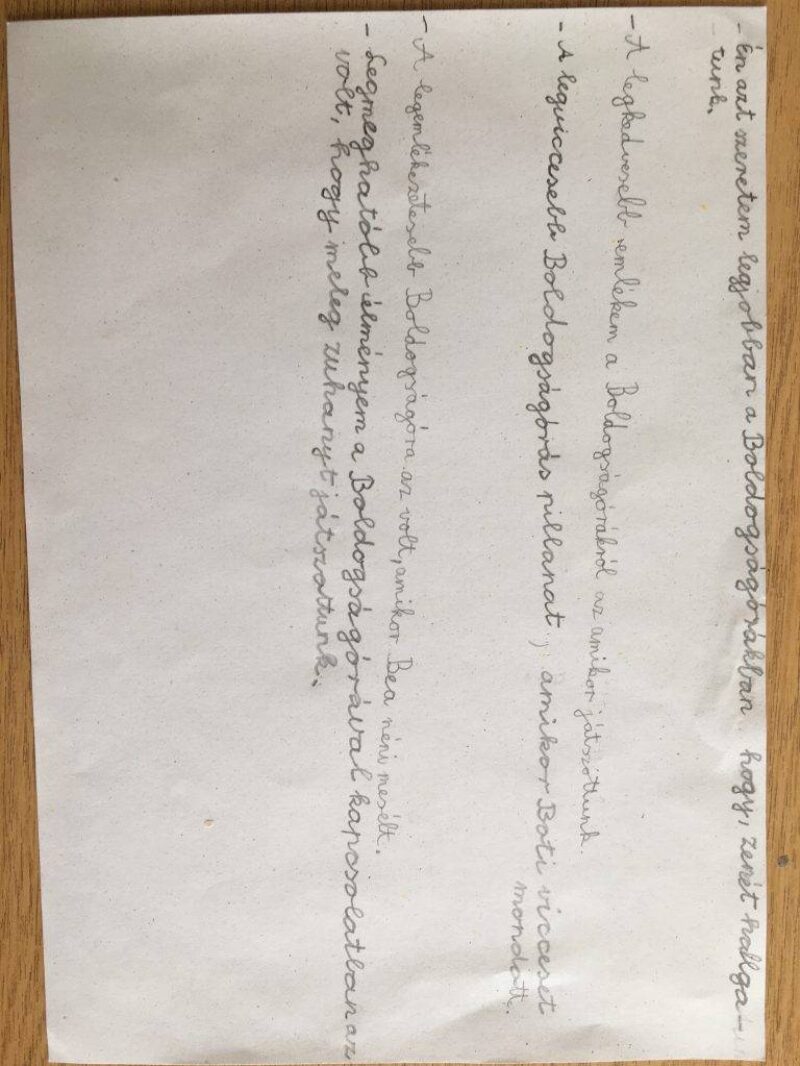 - Én azt szeretem legjobban a Boldogságórákban hogy, zenét hallga-
- tunk.
- A legkedvesebb emlékem a Boldogságórákról az amikor játszottunk.
- A legviccesebb Boldogságórás pillanat, amikor Boti vicceset
mondott.
- A legemlékezetesebb Boldogságóra az volt, amikor Bea néni mesélt.
- Legmeghatóbb élményem a Boldogságórával kapcsolatban az
volt, hogy meleg zuhanyt játszottunk.